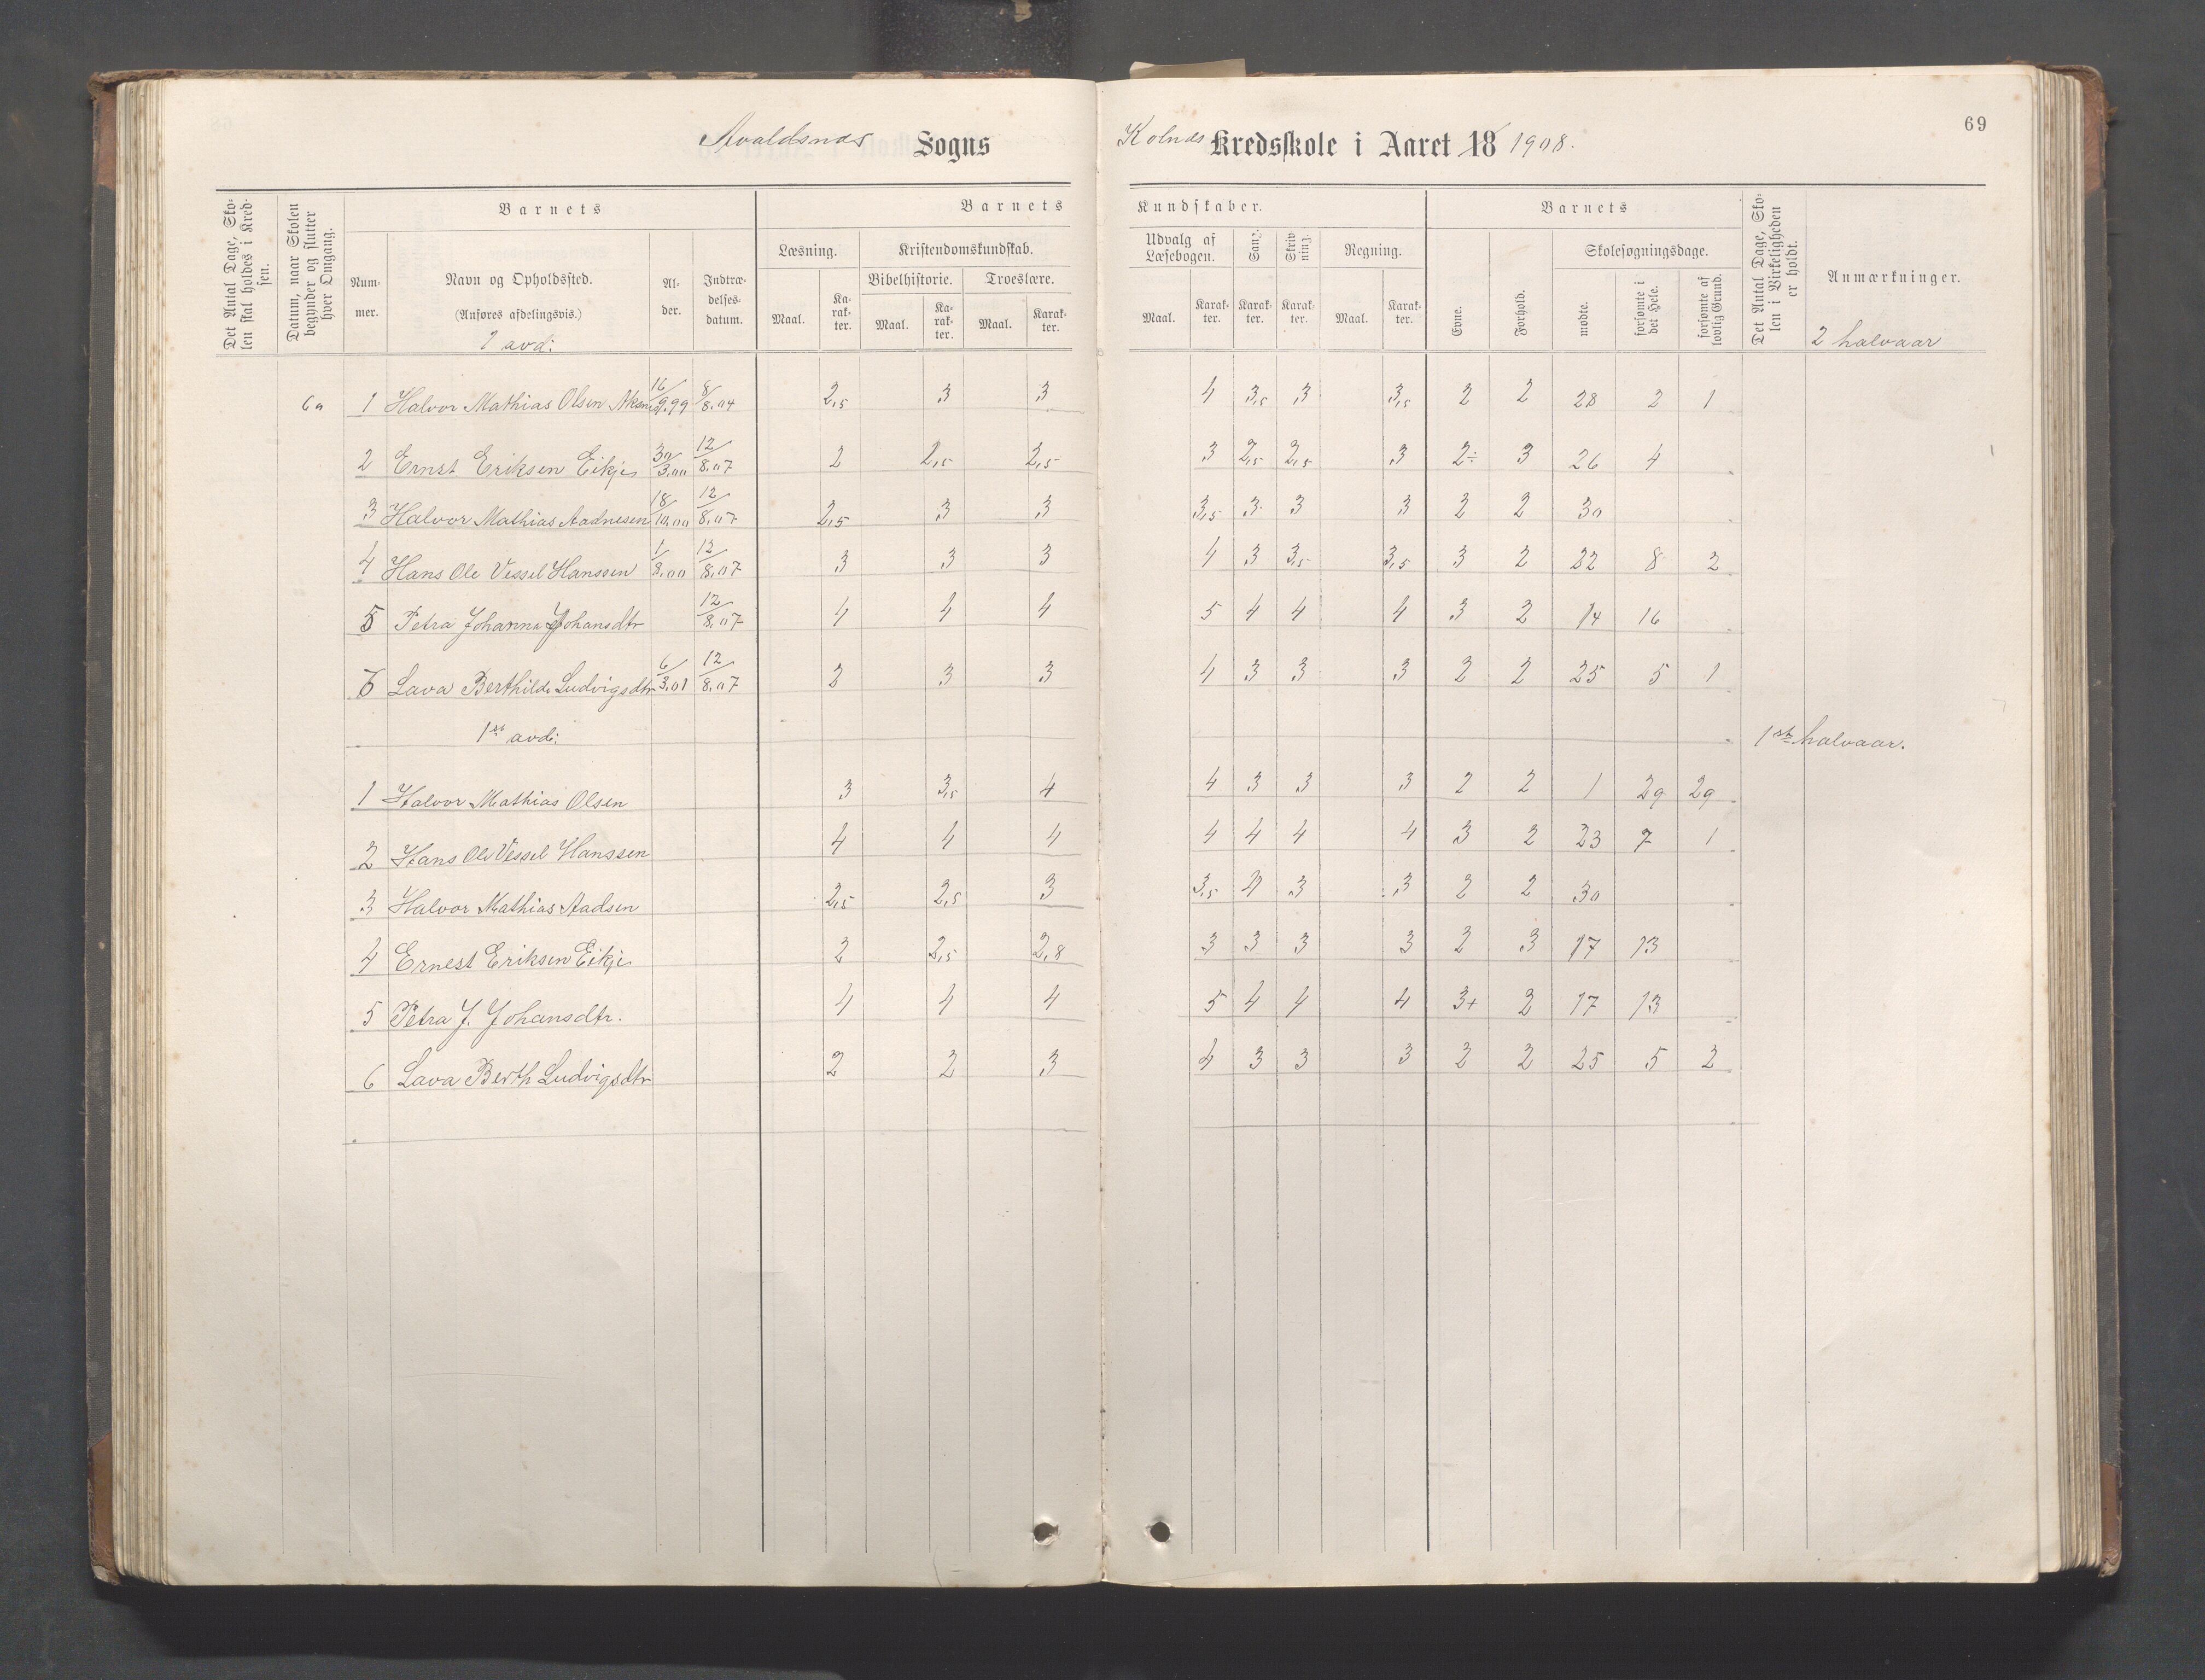 Avaldsnes Sogns Kolnes Kredsskole i Aaret 18 1908.
69
Det Antal Dage, Skolen skal holdes i Kredsen.
Datum, naar Skolen begynder og slutter hver Omgang.
Barnets
Nummer.
Navn og Opholdssted.
(Anføres afdelingsvis.)
1 avd:
Alder.
Indtrædelsesdatum.
Barnets Kundskaber.
Læsning. Maal. Karakter.
Kristendomskundskab.
Bibelhistorie. Maal. Karakter.
Troeslære. Maal. Karakter.
Udvalg af Læsebogen. Maal. Karakter.
Sang. Karakter.
Skrivning. Karakter.
Regning. Maal. Karakter.
Barnets
Evne.
Forhold.
Skolesøgningsdage.
mødte.
forsømte i det Hele.
forsømte af lovlig Grund.
Det Antal Dage, Skolen i Virkeligheden er holdt.
Anmærkninger.
2 halvaar
60 1 Halvor Mathias Olsen Aksnes 16/9.99 8/8.04 2,5 3 3 4 3,5 3 3,5 2 2 28 2 1
2 Ernst Eriksen Eikje 30/3.00 12/8.07 2 2,5 2,5 3 2,5 2,5 3 2÷ 3 26 4
3 Halvor Mathias Aadnesen 18/10.00 12/8.07 2,5 3 3 3,5 3 3 3 2 2 30
4 Hans Ole Vessel Hanssen 1/8.00 12/8.07 3 3 3 4 3 3,5 3,5 3 2 22 8 2
5 Petra Johanna Johansdtr 12/8.07 4 4 4 5 4 4 4 3 2 14 16
6 Lava Berthilde Ludvigsdtr 6/3.01 12/8.07 2 3 3 4 3 3 3 2 2 25 5 1
1st avd: 1st halvaar.
1 Halvor Mathias Olsen 3 3,5 4 4 3 3 3 2 2 1 29 29
2 Hans Ole Vessel Hanssen 4 4 4 4 4 4 4 3 2 23 7 1
3 Halvor Mathias Aadsen 2,5 2,5 3 3,5 3 3 2 2 30
4 Ernest Eriksen Eikje 2 2,5 2,8 3 3 3 3 2 3 17 13
5 Petra J. Johansdtr. 4 4 4 5 4 4 4 3+ 2 17 13
6 Lava Berth Ludvigsdtr 2 2 3 4 3 3 3 2 2 25 5 2